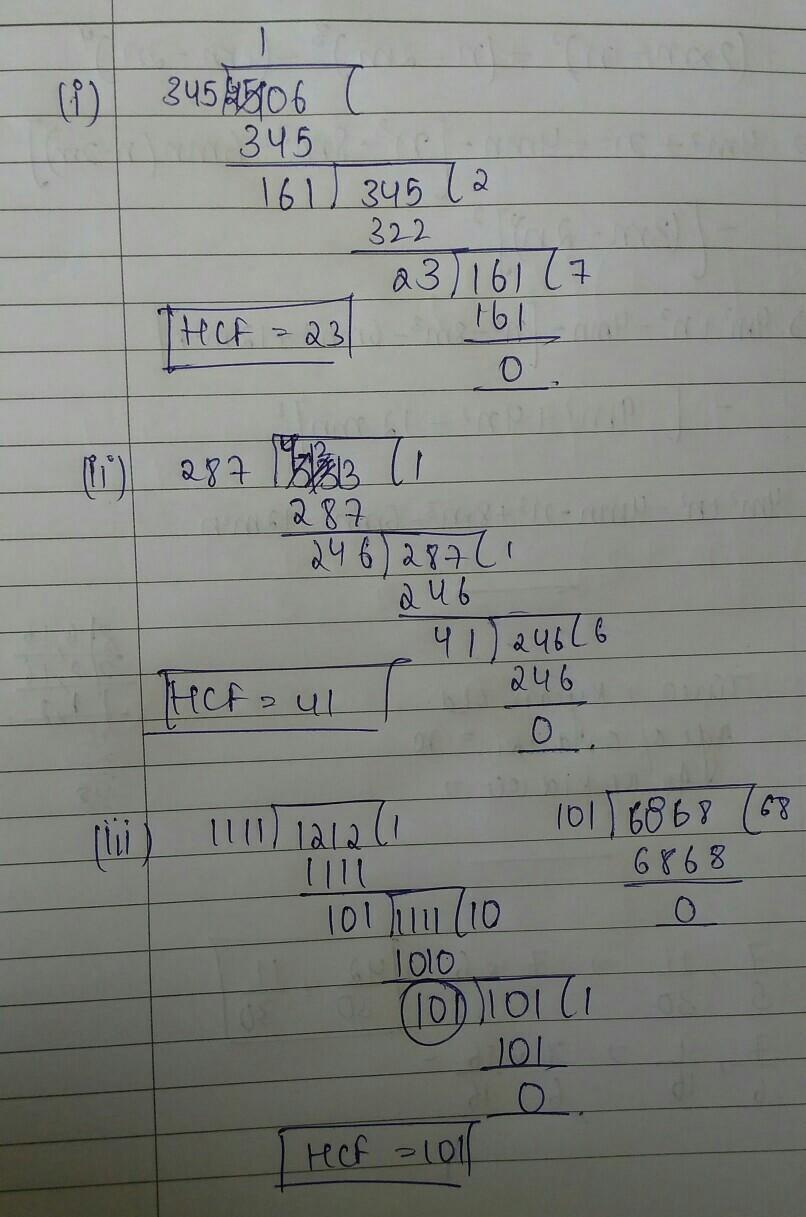 1
(i) 345 506 (
345
161) 345 (2
322
23) 161 (7
161
0
HCF = 23
(ii) 287 (1
287
246) 287 (1
246
41) 246 (6
246
0
HCF = 41
(iii) 1111) 1212 (1
1111
101) 1111 (10
1010
101) 101 (1
101
0
101) 6868 (68
6868
0
HCF = 101